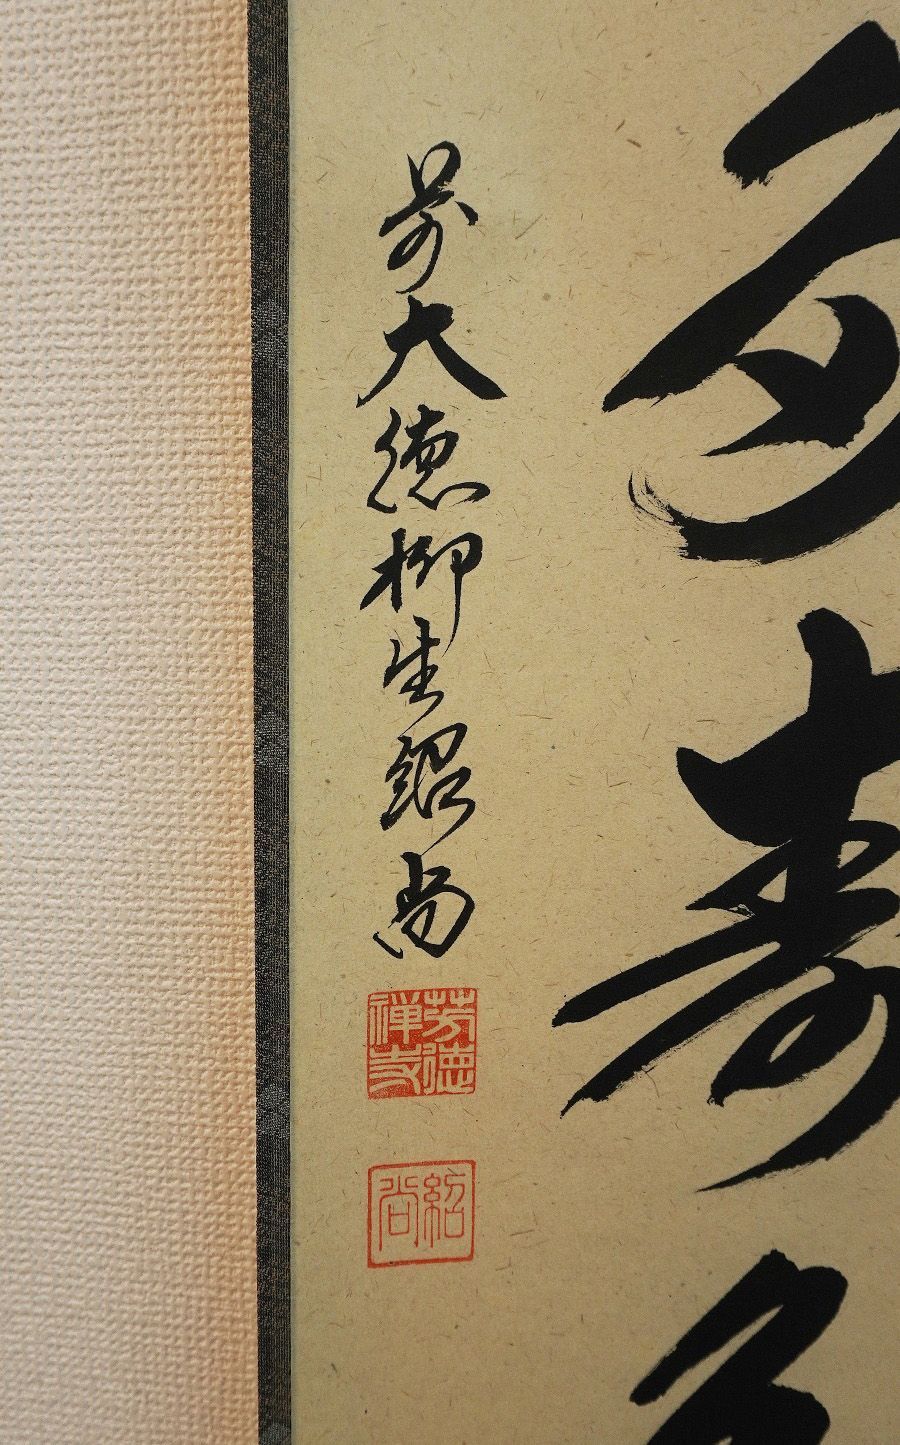 寿
前大徳柳生紹尚
芳徳禅寺
紹尚